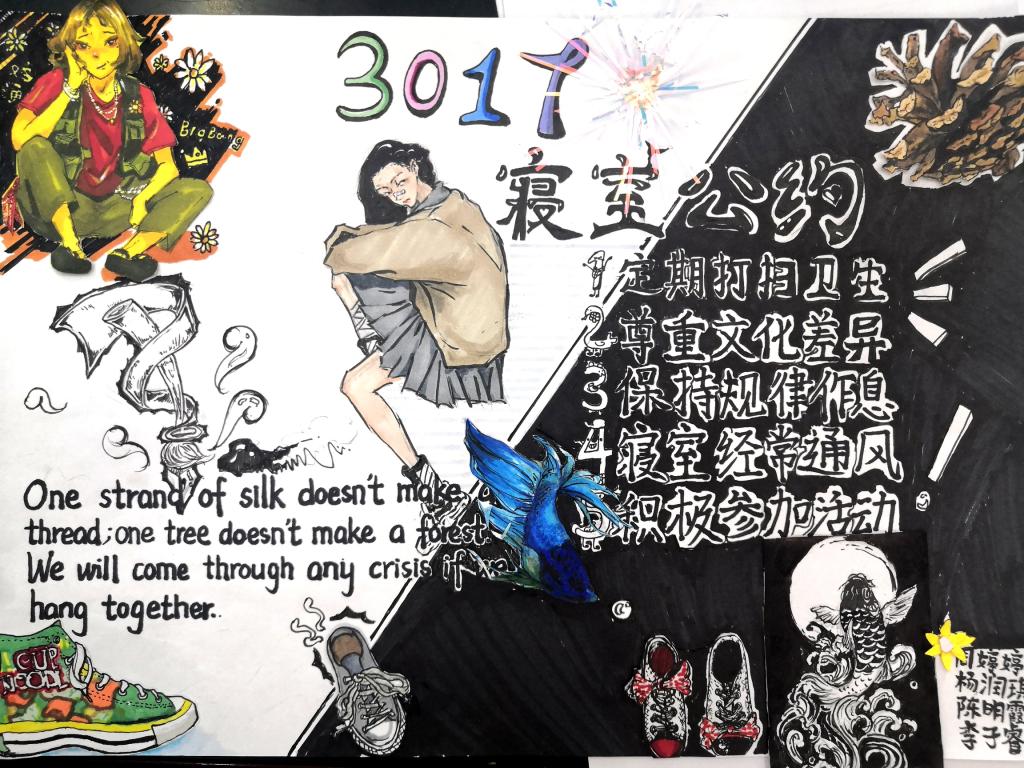 3017
寝室公约
BIGBANG
定期打扫卫生
2 尊重文化差异
3 保持规律作息
4 寝室经常通风
积极参加活动
One strand of silk doesn't make a
thread; one tree doesn't make a forest.
We will come through any crisis if we
hang together.
CUP
NOODL
周婷婷
杨润琪
陈明霞
李于睿